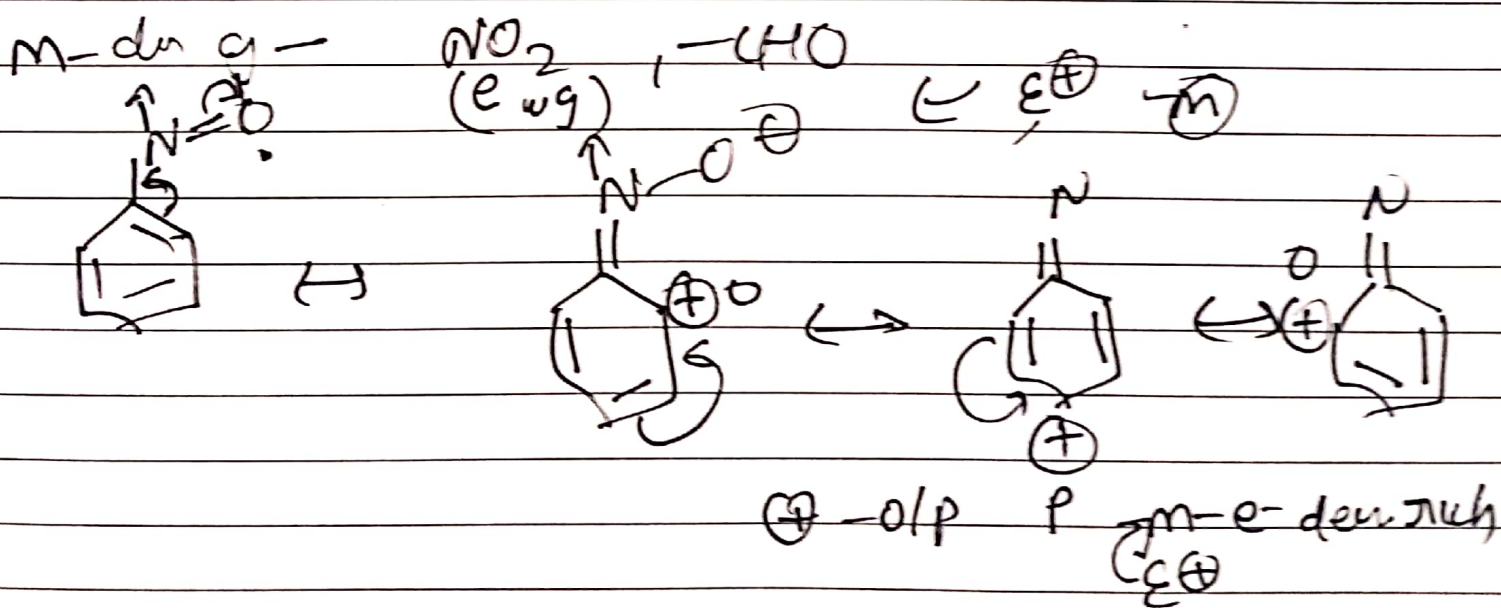 m-dir g - NO2, -CHO (- E⊕ -m
(ewg)
N=O N-O ⊖ N N
↔ ⊕ O ↔ ↔ O ⊕
⊕
⊕ -o/p P -m-e- den rich
E⊕